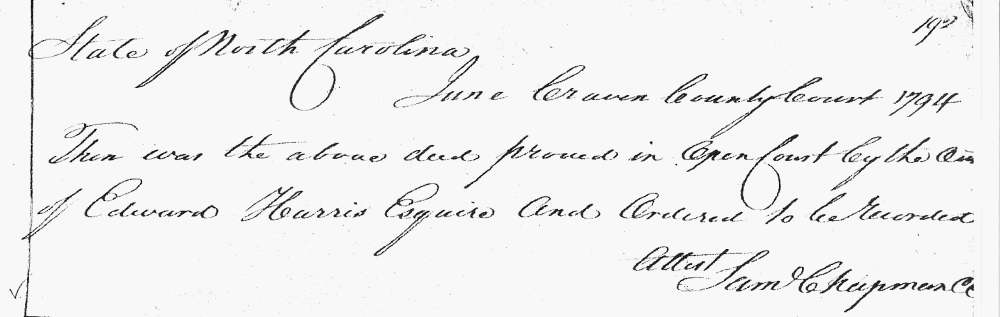 192
State of North Carolina
June Craven County Court 1794
Then was the above deed proved in Open Court by the
of Edward Harris Esquire and Ordered to be recorded
Attest Sam Chapman